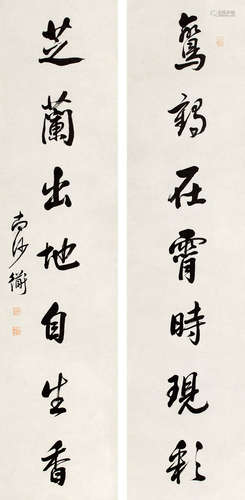 鸞鶴在霄時現彩
芝蘭出地自生香
南沙衡